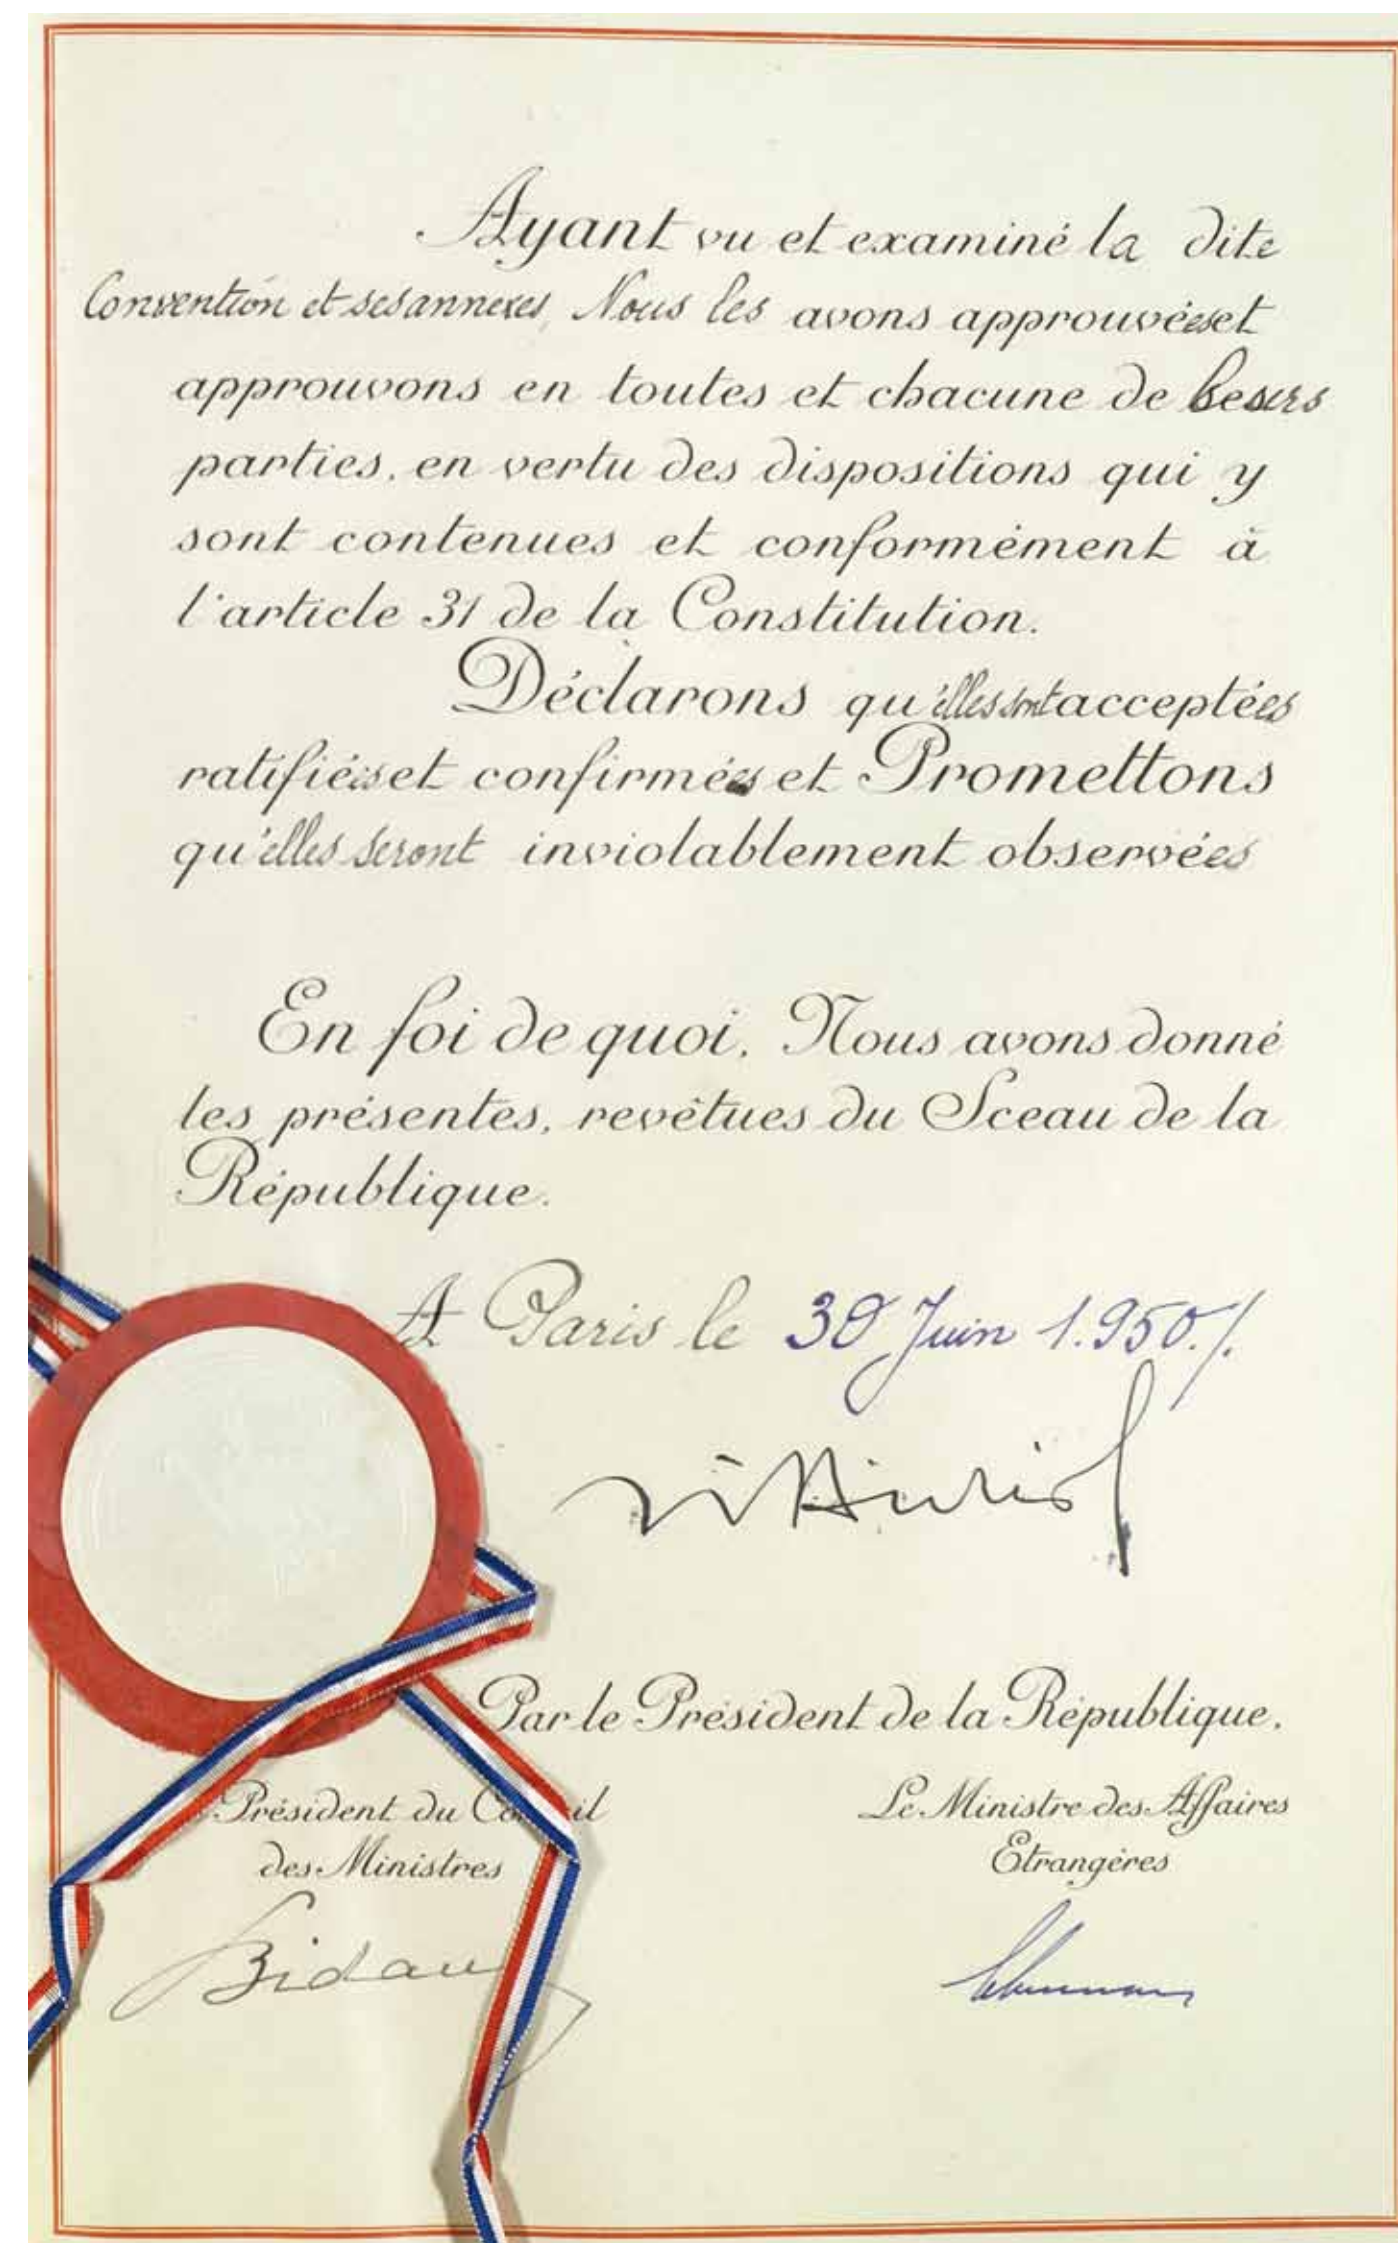 Ayant vu et examiné la dite
Convention et ses annexes, Nous les avons approuvées et
approuvons en toutes et chacune de leurs
parties, en vertu des dispositions qui y
sont contenues et conformément à
l'article 31 de la Constitution.
Déclarons qu'elles sont acceptées
ratifiées et confirmées et Promettons
qu'elles seront inviolablement observées
En foi de quoi, Nous avons donné
les présentes, revêtues du Sceau de la
République.
A Paris le 30 Juin 1.950./.
Par le Président de la République.
Président du Conseil
des Ministres
Le Ministre des Affaires
Etrangères
Bidau